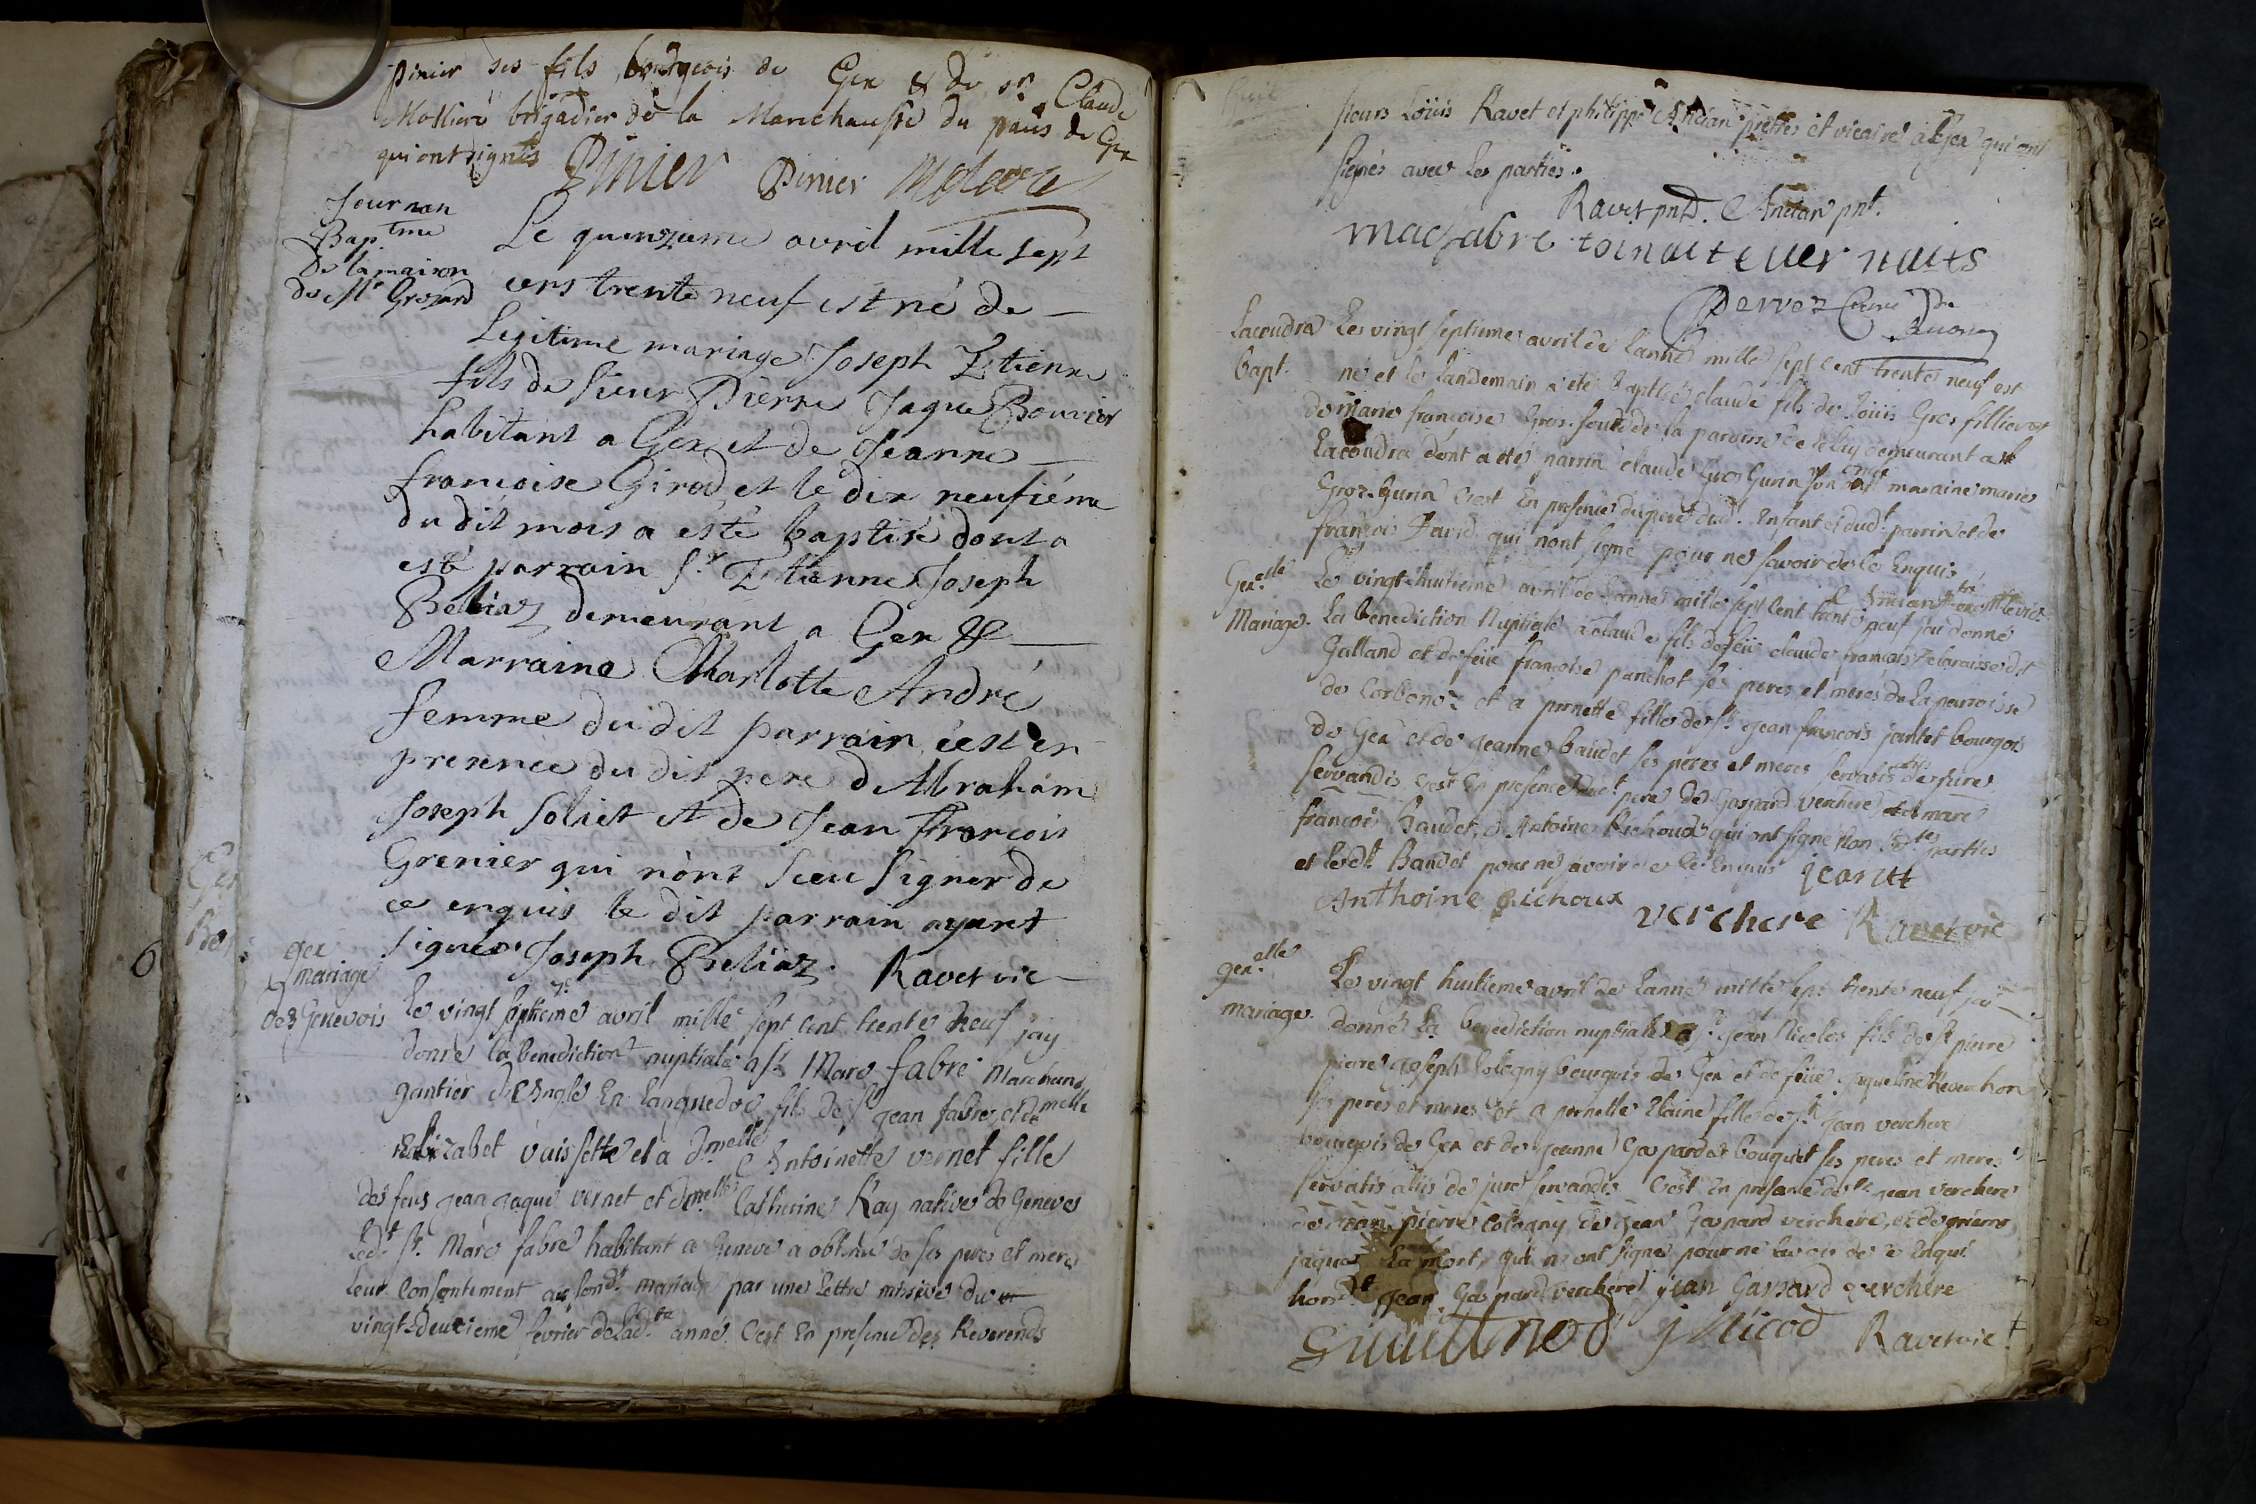 pinier ses fils bourgeois de Gex & de sr. Claude
Molliere brigadier de la Marechaussée du païs de Gex
qui ont signés Pinier Pinier Moliere
Journan
Bap.tme
de la maison
de Mr Grozard
Le quinzieme avril mille sept
cens trente neuf est né de
Legitime mariage Joseph Etienne
fils de sieur Pierre Jaque Bouvier
habitant a Gex et de Jeanne
francoise Girod et le dix neufiéme
du dit mois a esté baptisé dont a
esté parrain Sr. Etienne Joseph
Beliaz demeurant a Gex &
Marraine Charlotte André
femme du dit parrain c'est en
presence du dit pere d'Abraham
Joseph Soliet et de Jean François
Grenier qui n'ont sceu signer de
ce enquis le dit parrain ayant
signés Joseph Beliaz. Ravet vic
gex
mariage
des Genevois
Le vingt septieme avril mille sept cent trente neuf jay
donné la benediction nuptiale a sr. Marc fabre Marchand
gantier d'Angle En Languedoc fils de sr jean fabre et de melle
Elizabet vaissette et a dmelle Antoinette vernet fille
des feus jean jaque vernet et dmelle Catherine Ray native de Geneve
Ledt. sr. Marc fabre habitant a Geneve a obtenu de ses peres et meres
leur consentement au sondt. mariage par une lettre missive du
vingt-deuxieme fevrier de Ladte. anné C'est En presence des Reverends
sieurs Loüis Ravet et philippe Ancian prettres et vicaires a Gex qui ont
signés avec les parties.
Ravet pnt. Ancian pnt.
mac fabre toinaite ver naits
Pervez Curé de
Lacoudra
bapt.
Les vingt septieme avril de Lanné mille sept cent trente neuf est
né et le landemain a eté baptisé claude fils de Loüis Gros fillierez
de marie francoise Gros de la paroisse de demeurant a
Lacoudra dont a eté parrin claude Gros Gurin son oncle maraine marie
Gros-Gurin C'est En presence du pere dud. Enfant et dudt parrin et de
françois David qui nont signé pour ne savoir de ce Enquis
Ancian
Gex.elle
Mariage.
Le vingt-huitieme avril de Lanné mille sept cent trente neuf jai donné
La benediction Nuptiale a claude fils de feü claude francois Delaraisse dit
Galland et de feüe francoise panchot ses peres et meres de La parroisse
de Corbonoz et a pernette fille de sr. jean francois jantet bourgois
de Gex et de jeanne baudet ses peres et meres servatis aliis de jure
servandis C'est En presence dudt. pere de Gaspard verchere et marc
françois Baudet, et Antoine Richoud qui ont signé non Lesdte parties
et ledt. Baudet pour ne savoir de ce Enquis jeantet
Anthoine Richoux verchere Ravet vic
gex.elle
mariage.
Le vingt huitieme avril de Lanné mille sept trente neuf jai
donné La benediction nuptiale a sr. jean Nicolas fils de sr pierre
pierre joseph Cologny bourgois de Gex et de feüe jaqueline
ses peres et meres et a pernette Elaine fille de sr. jean verchere
bourgois de Gex et de jeanne Gasparde bouquet ses peres et meres
servatis aliis de jure servandis C'est En presence de sr jean verchere
de jean pierre Cologny de jean Gaspard verchere, et de pierre
jaque Lamont, qui n'ont signé pour ne savoir de ce Enquis
hors Jean Gaspard verchere jean Gaspard verchere
j Nicod Ravet vic